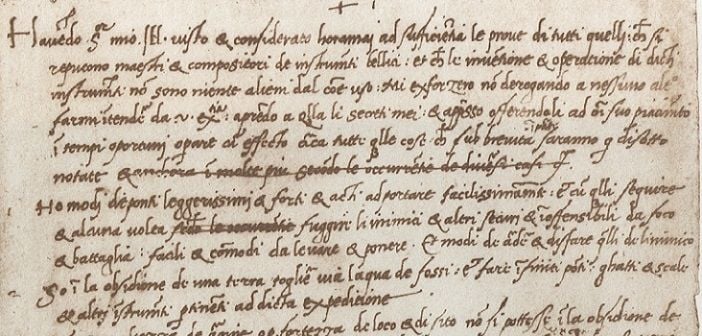 Havēdo S.re mio Ill. visto & considerato horamai ad sufficientia le prove di tutti quelli ch̄ si
reputono maestri & compositori de instrumti bellici: et ch̄ le inventione & operatione di dicti
instrumti nō sono niente alieni dal cōe uso: Mi exforzero nō derogando a nessuno altro
farmi intendere da v. ex.tia: aprēdo a qlla li secreti mei: & apresso offerendoli ad oī suo piacimto
ī tempi oportuni operare cū effecto circa tutte qlle cose ch̄ sub brevita ī parte saranno q̄ disotto
notate & anchora ī molte piu secōdo le occurrentie de diversi casi &.
Ho modi de ponti leggerissimi & forti & acti ad portare facilissimamte: et cū qlli seguire
& alcuna volta secōdo le occurentie fuggire li inimici & altri securi & inoffensibili da foco
& battaglia: facili & cōmodi da levare & ponere. Et modi de ardere & disfare qlli de linimico
So ī la obsidione de una terra togliere via laqua de fossi: et fare īfiniti pōti ghatti & scale
& altri īstrumti ptinēti ad dicta expeditione
de loco & di sito nō si pottesse ī la obsidione de